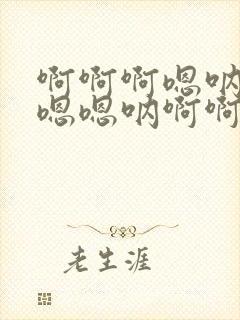 啊啊啊嗯呐
嗯嗯呐啊啊
老生涯